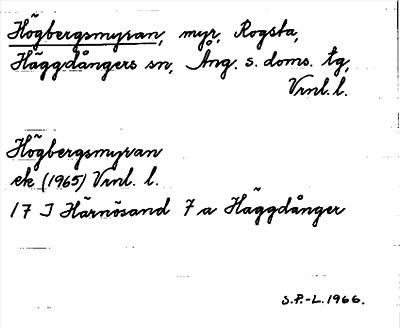 Högbergsmyran, myr, Rogsta,
Häggdångers sn, Ång. s. doms. tg,
Vrnl. l.
Högbergsmyran
ek (1965) Vrnl. l.
17 I Härnösand 7 a Häggdånger
S.P.-L. 1966.